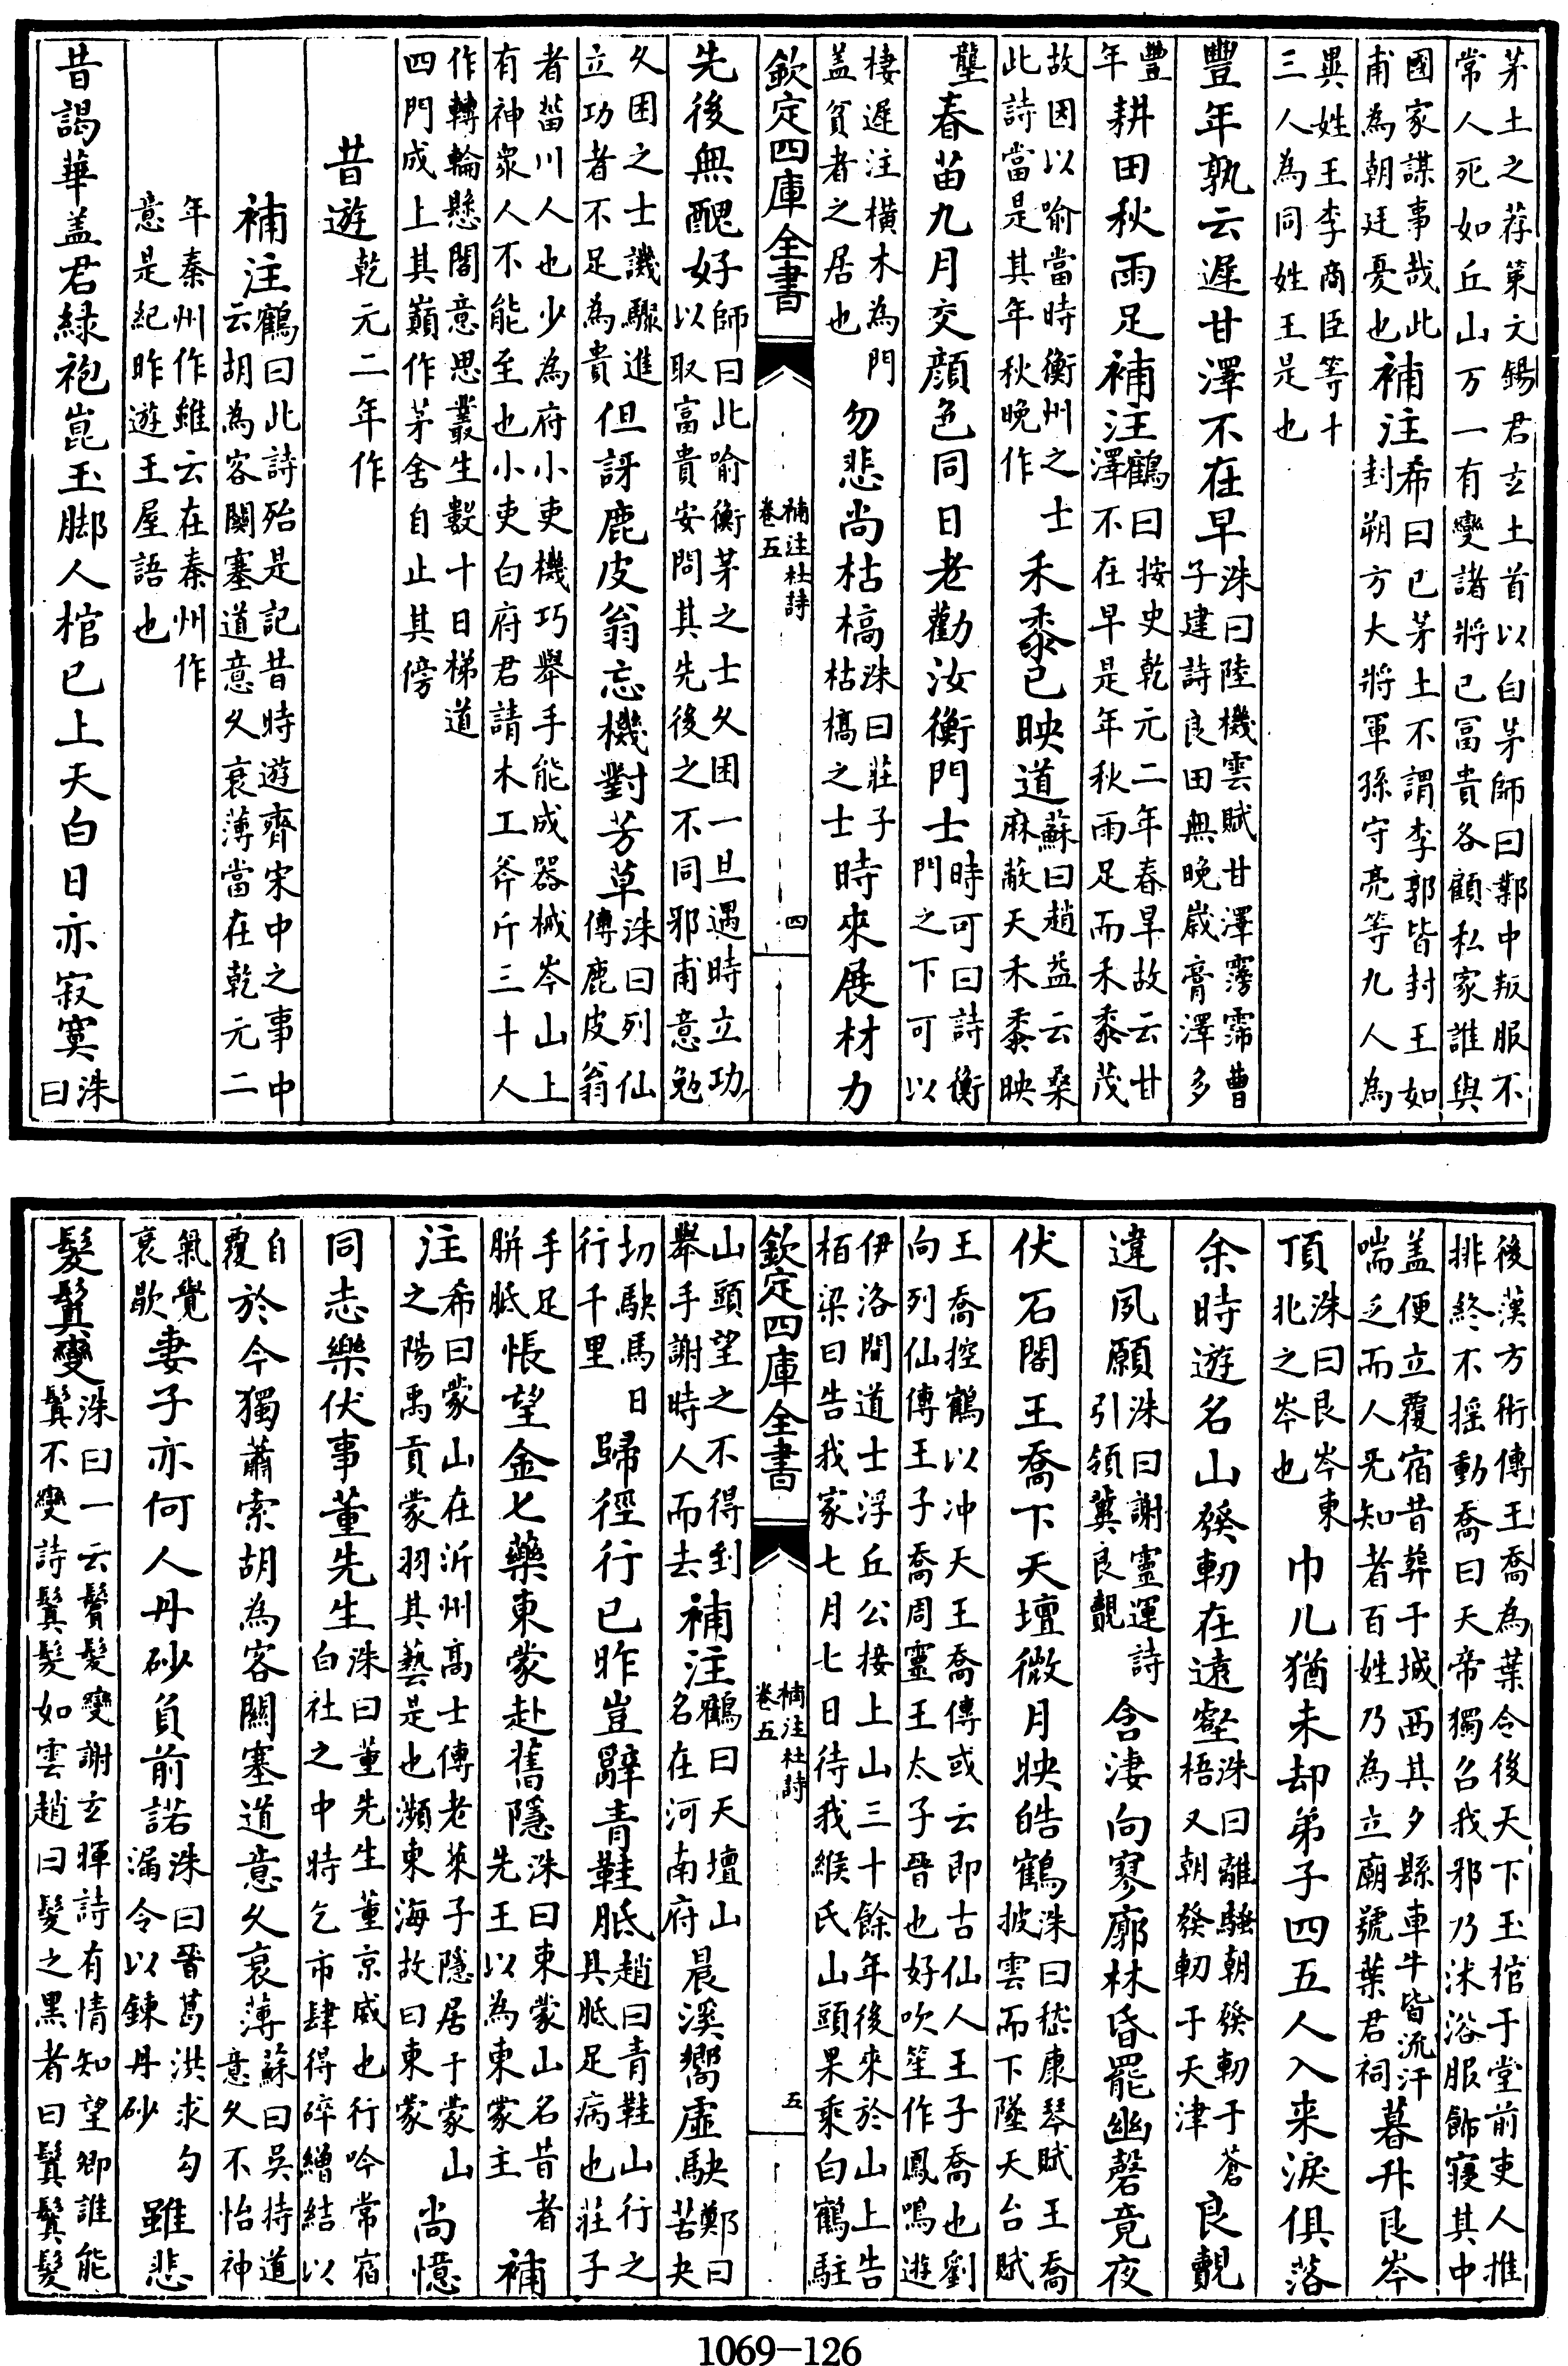 茅土之荐策文錫君玄土首以白茅師曰鄴中叛服不
常人死如丘山万一有變諸將已冨貴各顧私家誰與
國家謀事哉此
甫為朝廷憂也
補注希曰已茅土不謂李郭皆封王如
封朔方大將軍孫守亮等九人為
異姓王李商臣等十
三人為同姓王是也
豐年孰云遲甘澤不在早洙曰陸機雲賦甘澤霶霈曹
子建詩良田無晚歲膏澤多
豐
年
耕田秋雨足補注鶴曰按史乾元二年春旱故云甘
澤不在早是年秋雨足而禾黍茂
故因以喻當時衡州之士
此詩當是其年秋晚作
禾黍已映道蘇曰趙益云桑
麻蔽天禾黍映
壟春苗九月交顔色同日老勸汝衡門士時可曰詩衡
門之下可以
棲遲注橫木為門
盖貧者之居也
勿悲尚枯槁洙曰莊子
枯槁之士
時來展材力
欽定四庫全書
補注杜詩
卷五
四
先後無醜好師曰此喻衡茅之士久困一旦遇時立功
以取富貴安問其先後之不同邪甫意勉
久困之士譏驟進
立功者不足為貴
但訝鹿皮翁忘機對芳草洙曰列仙
傳鹿皮翁
者菑川人也少為府小吏機巧舉手能成器械岑山上
有神泉人不能至也小吏白府君請木工斧斤三十人
作轉輪懸閣意思叢生數十日梯道
四門成上其巔作茅舍自止其傍
昔遊乾元二年作
補注鶴曰此詩殆是記昔時遊齊宋中之事中
云胡為客關塞道意久衰薄當在乾元二
年秦州作維云在秦州作
意是紀昨遊王屋語也
昔謁華盖君緑袍崑玉脚人棺已上天白日亦寂寞洙
曰
後漢方術傳王喬為葉令後天下玉棺于堂前吏人推
排終不摇動喬曰天帝獨召我邪乃沐浴服飾寢其中
盖便立覆宿昔葬于城西其夕縣車牛皆流汗
喘乏而人旡知者百姓乃為立廟號葉君祠
暮升艮岑
頂洙曰艮岑東
北之岑也
巾几猶未却弟子四五人入来淚俱落
余時遊名山發軔在遠壑洙曰離騷朝發軔于蒼
梧又朝發軔于天津
良覿
違夙願洙曰謝靈運詩
引領冀良覿
含淒向寥廓林昏罷幽磬竟夜
伏石閣王喬下天壇微月映皓鶴洙曰嵇康琴賦王喬
披雲而下墜天台賦
王喬控鶴以冲天王喬傳或云即古仙人王子喬也劉
向列仙傳王子喬周靈王太子晉也好吹笙作鳳鳴遊
伊洛間道士浮丘公接上山三十餘年後來於山上告
栢梁曰告我家七月七日待我緱氏山頭果乘白鶴駐
欽定四庫全書
補注杜詩
卷五
五
山頭望之不得到
舉手謝時人而去
補注鶴曰天壇山
名在河南府
晨溪嚮虚駃鄭曰
苦夬
切駃馬日
行千里
歸徑行已昨豈辭青鞋胝趙曰青鞋山行之
具胝足病也莊子
手足
胼胝
悵望金匕藥東蒙赴舊隱洙曰東蒙山名昔者
先王以為東蒙主
補
注希曰蒙山在沂州高士傳老萊子隱居于蒙山
之陽禹貢蒙羽其藝是也瀕東海故曰東蒙
尚憶
同志樂伏事董先生洙曰董先生董京威也行吟常宿
白社之中時乞市肆得碎繒結以
自
覆
於今獨蕭索胡為客關塞道意久衰薄蘇曰吳持道
意久不怡神
氣覺
衰歇
妻子亦何人丹砂負前諾洙曰晉葛洪求勾
漏令以鍊丹砂
雖悲
髮鬒變洙曰一云鬢髮變謝玄暉詩有情知望鄉誰能
鬒不變詩鬒髮如雲趙曰髮之黑者曰鬒鬒髮
1069-126